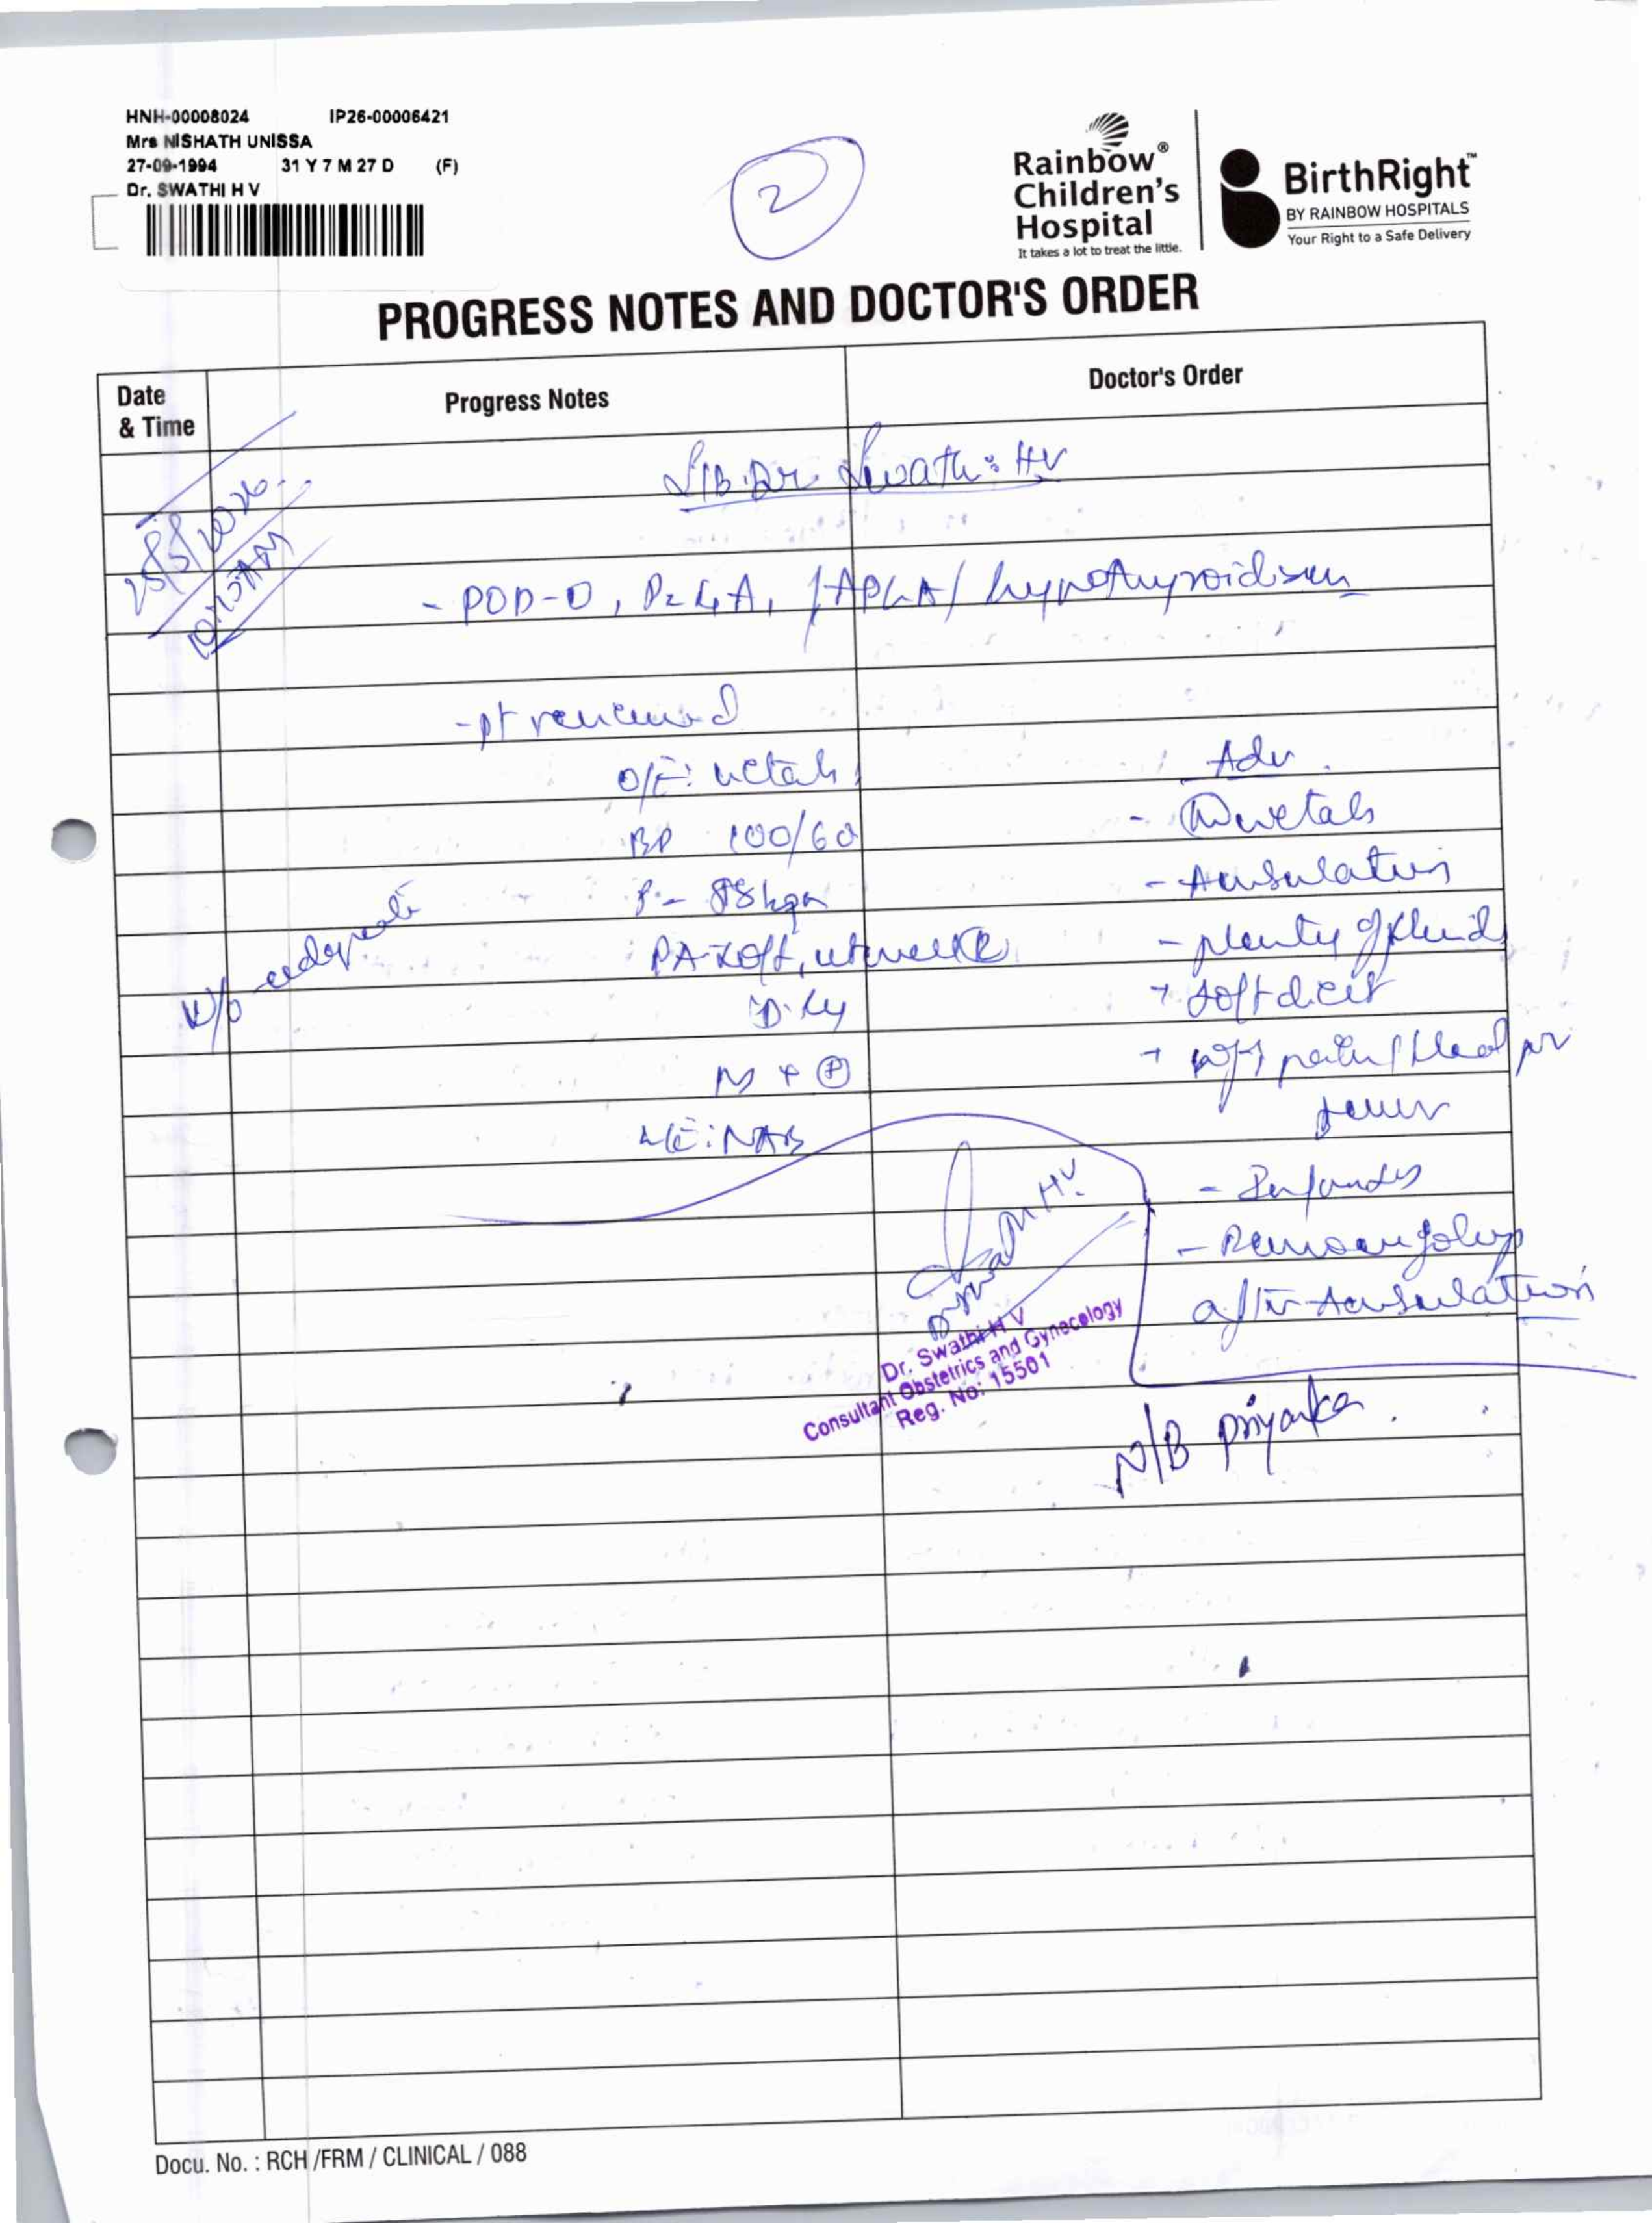 HNH-00008024 IP26-00006421
Mrs NISHATH UNISSA
27-09-1994 31 Y 7 M 27 D (F)
Dr. SWATHI H V
2
Rainbow®
Children's
Hospital
It takes a lot to treat the little.
BirthRight™
BY RAINBOW HOSPITALS
Your Right to a Safe Delivery
PROGRESS NOTES AND DOCTOR'S ORDER
Date & Time
Progress Notes
Doctor's Order
S/B Dr. Swathi HV
25/5/2026
- POD-0, P2L1A1 /APLA/ hypothyroidism
- pt reviewed
O/E: vitals
BP 100/60
P - 88 bpm
PA-soft, uterus
U/o adequate
L/E: NAB
Adv
- vitals
- Ambulation
- plenty of fluids
- soft diet
fever
- Remove foleys
after Ambulation
Dr. Swathi H V
Consultant Obstetrics and Gynecology
Reg. No: 15501
N/B Priyanka.
Docu. No. : RCH /FRM / CLINICAL / 088